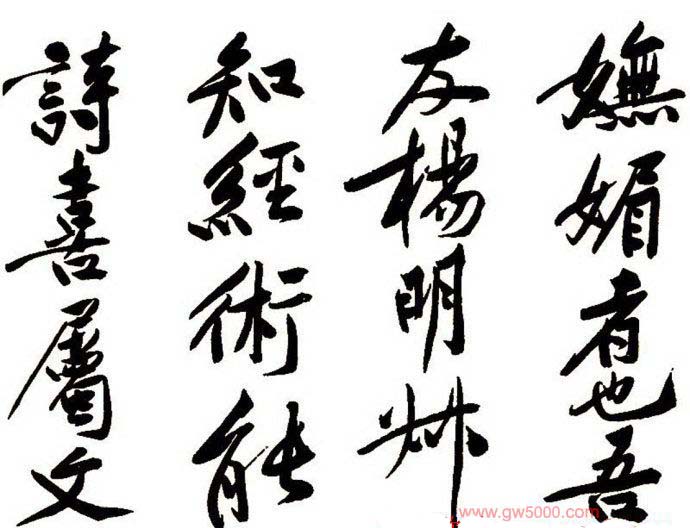 嫵媚者也吾
友楊明叔
知經術能
詩喜屬文
www.gw5000.com